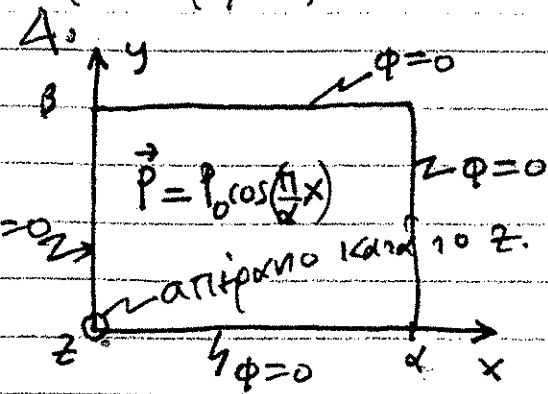 Δ.
y
φ=0
β
P⃗ = P₀cos(π/α x)
φ=0
=0
απέραντο κατά το z.
z
φ=0
α
x